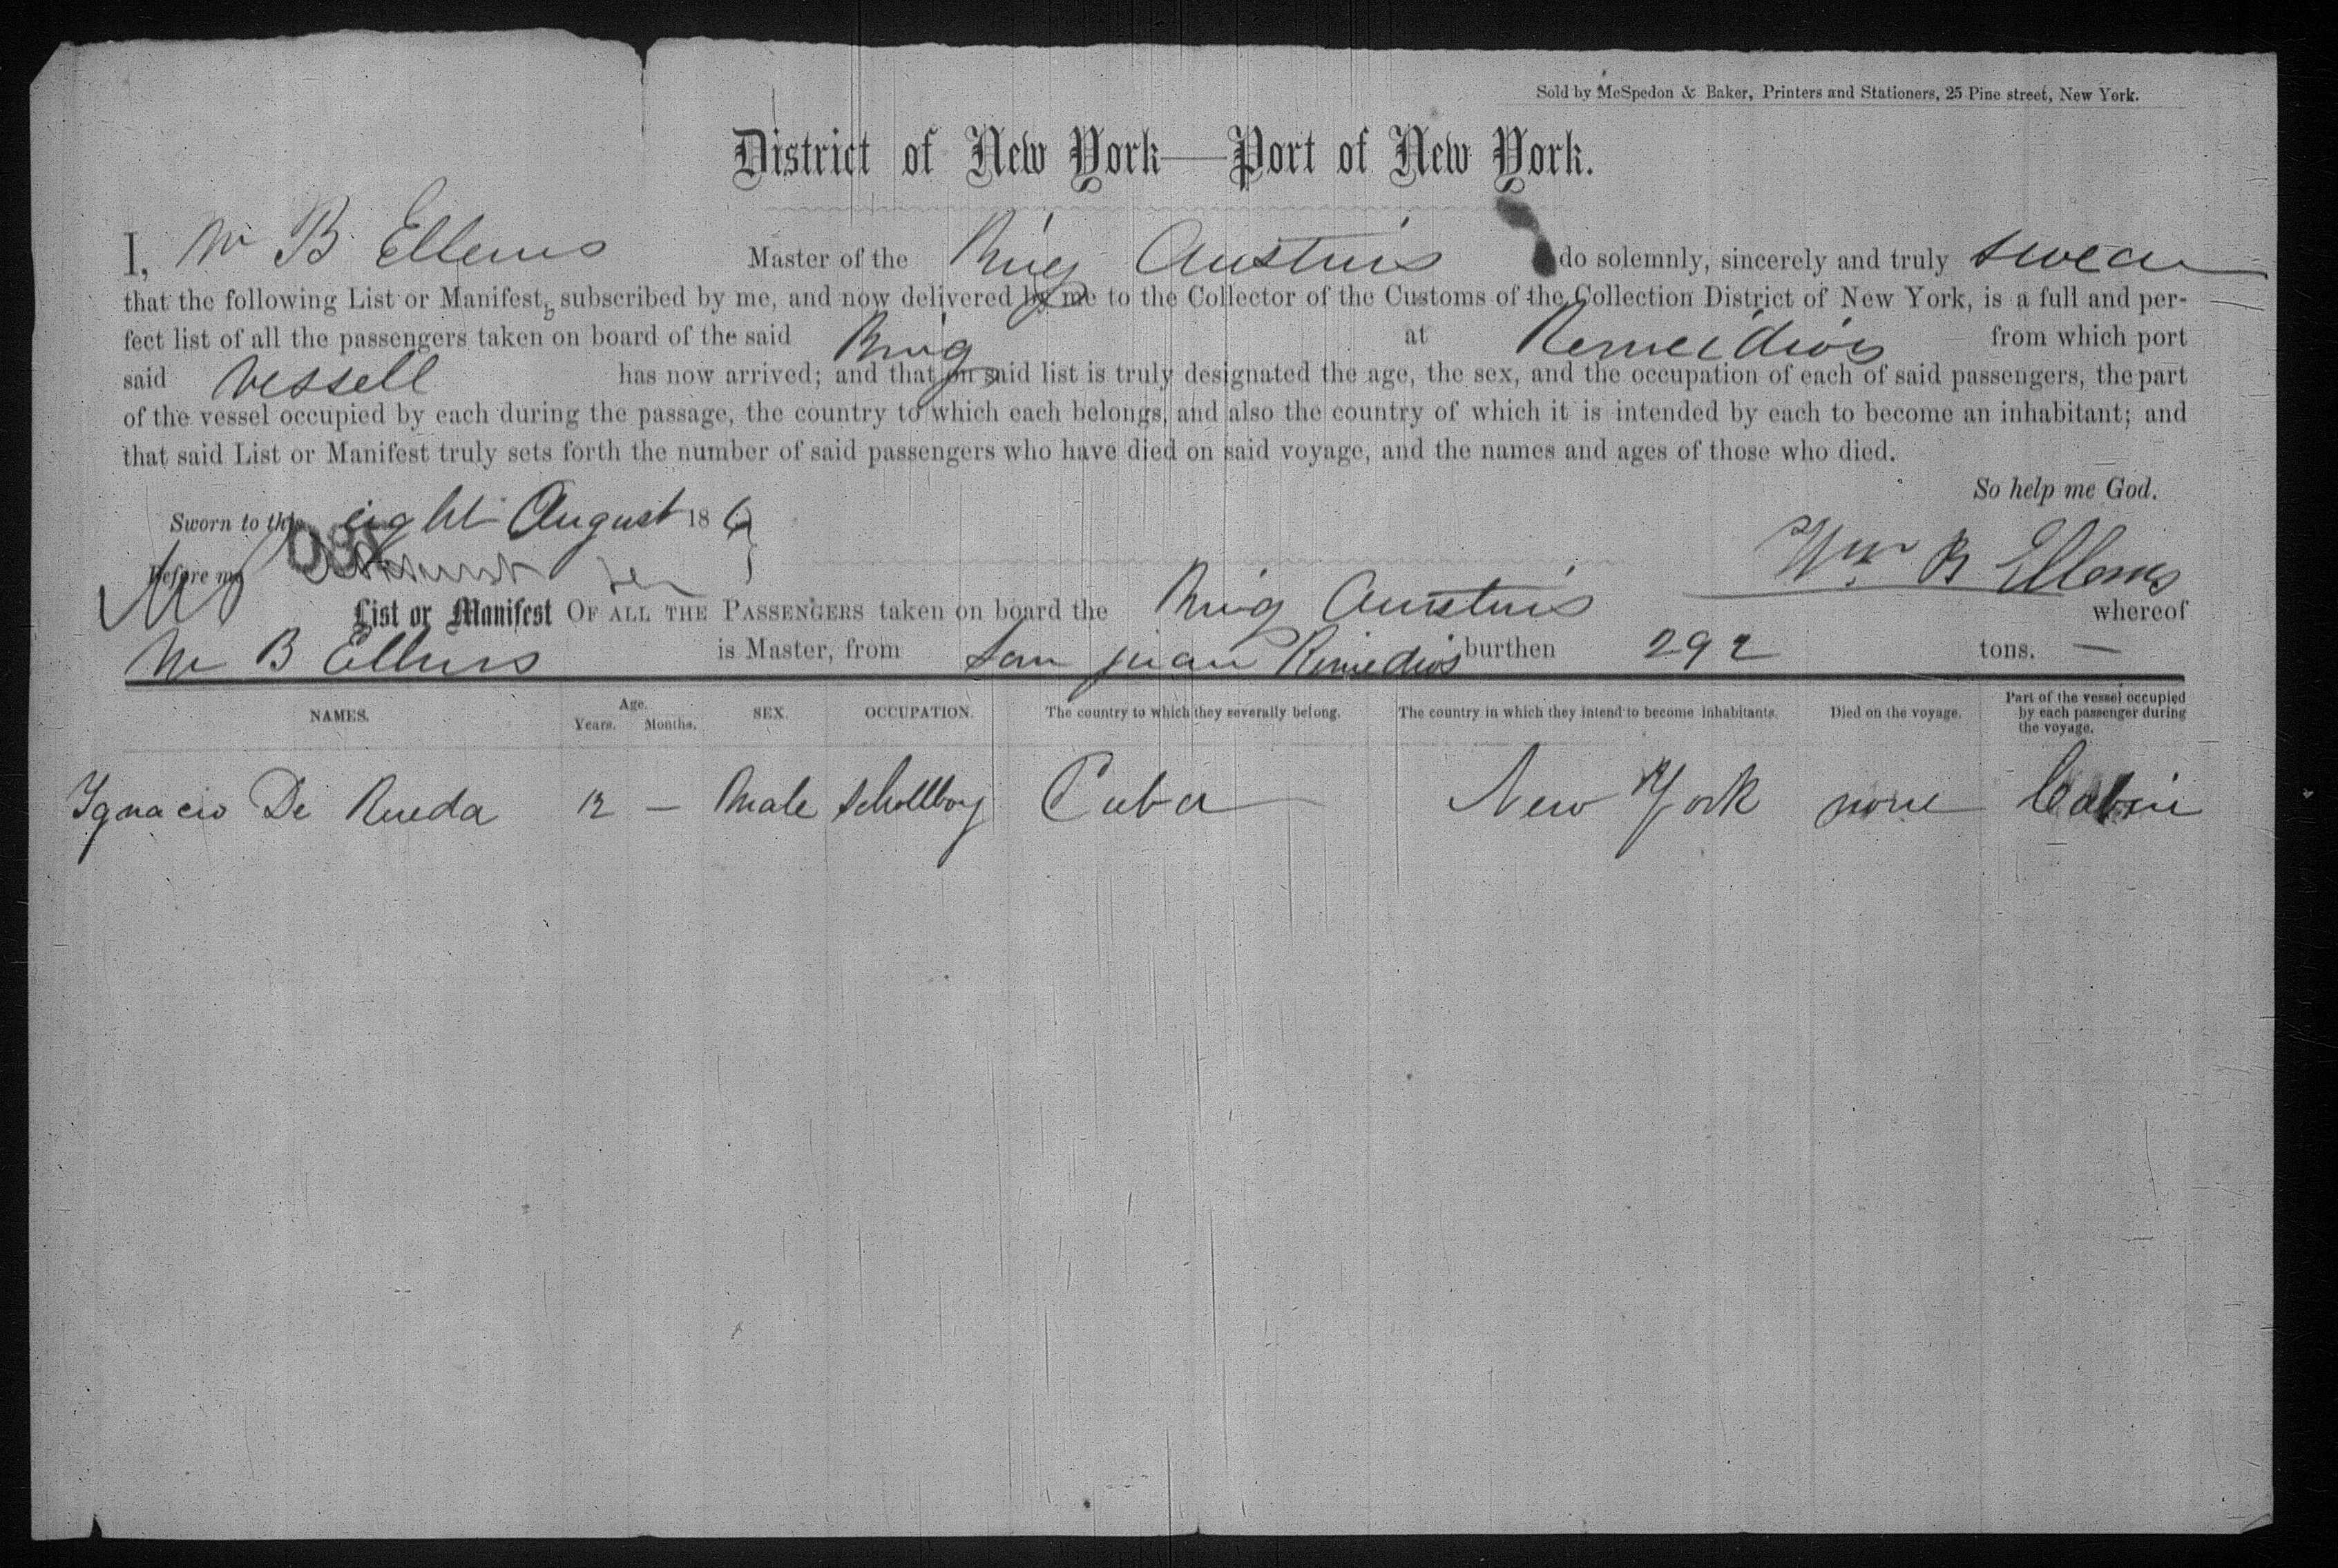 Sold by McSpedon & Baker, Printers and Stationers, 25 Pine street, New York.
District of New York—Port of New York.
I, W B Ellems Master of the Brig Austins do solemnly, sincerely and truly swear
that the following List or Manifest, subscribed by me, and now delivered by me to the Collector of the Customs of the Collection District of New York, is a full and per-
fect list of all the passengers taken on board of the said Brig at Remeidios from which port
said vessell has now arrived; and that on said list is truly designated the age, the sex, and the occupation of each of said passengers, the part
of the vessel occupied by each during the passage, the country to which each belongs, and also the country of which it is intended by each to become an inhabitant; and
that said List or Manifest truly sets forth the number of said passengers who have died on said voyage, and the names and ages of those who died.
So help me God.
Sworn to this eight August 186
Before me
Wm B Ellems
List or Manifest OF ALL THE PASSENGERS taken on board the Brig Austins whereof
W B Ellems is Master, from San juan Remedios burthen 292 tons. —
NAMES. Age. Years. Months. SEX. OCCUPATION. The country to which they severally belong. The country in which they intend to become inhabitants. Died on the voyage. Part of the vessel occupied by each passenger during the voyage.
Ignacio De Rueda 12 — Male schollboy Cuba New York none Cabin